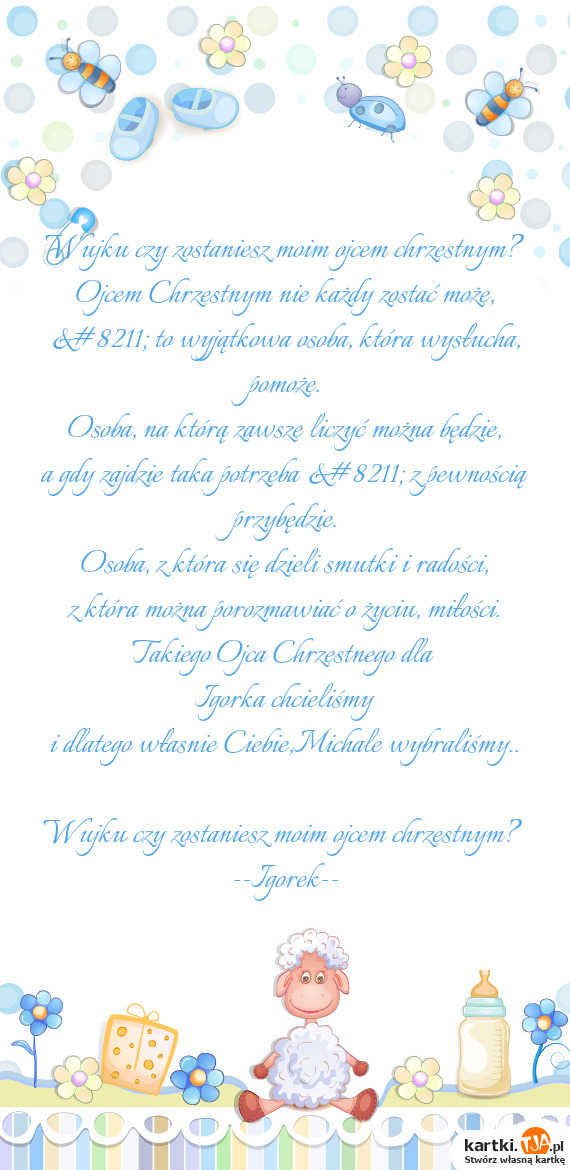 Wujku czy zostaniesz moim ojcem chrzestnym?
Ojcem Chrzestnym nie każdy zostać może,
&#8211; to wyjątkowa osoba, która wysłucha,
pomoże.
Osoba, na którą zawsze liczyć można będzie,
a gdy zajdzie taka potrzeba &#8211; z pewnością
przybędzie.
Osoba, z która się dzieli smutki i radości,
z która można porozmawiać o życiu, miłości.
Takiego Ojca Chrzestnego dla
Igorka chcieliśmy
i dlatego własnie Ciebie,Michale wybraliśmy..
Wujku czy zostaniesz moim ojcem chrzestnym?
--Igorek--
kartki.TJA.pl
Stwórz własną kartkę